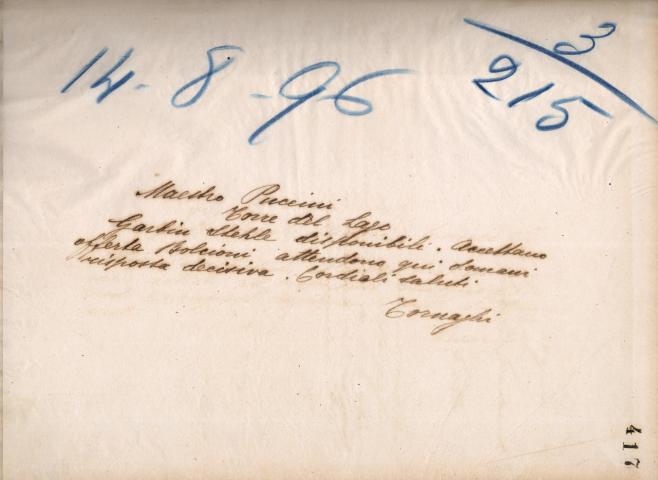 14-8-96
3/215
Maestro Puccini
Torre del Lago
Garbin Stehle disponibili. Accettano
offerta Bolcioni attendono qui domani
risposta decisiva. Cordiali saluti
Tornaghi
417